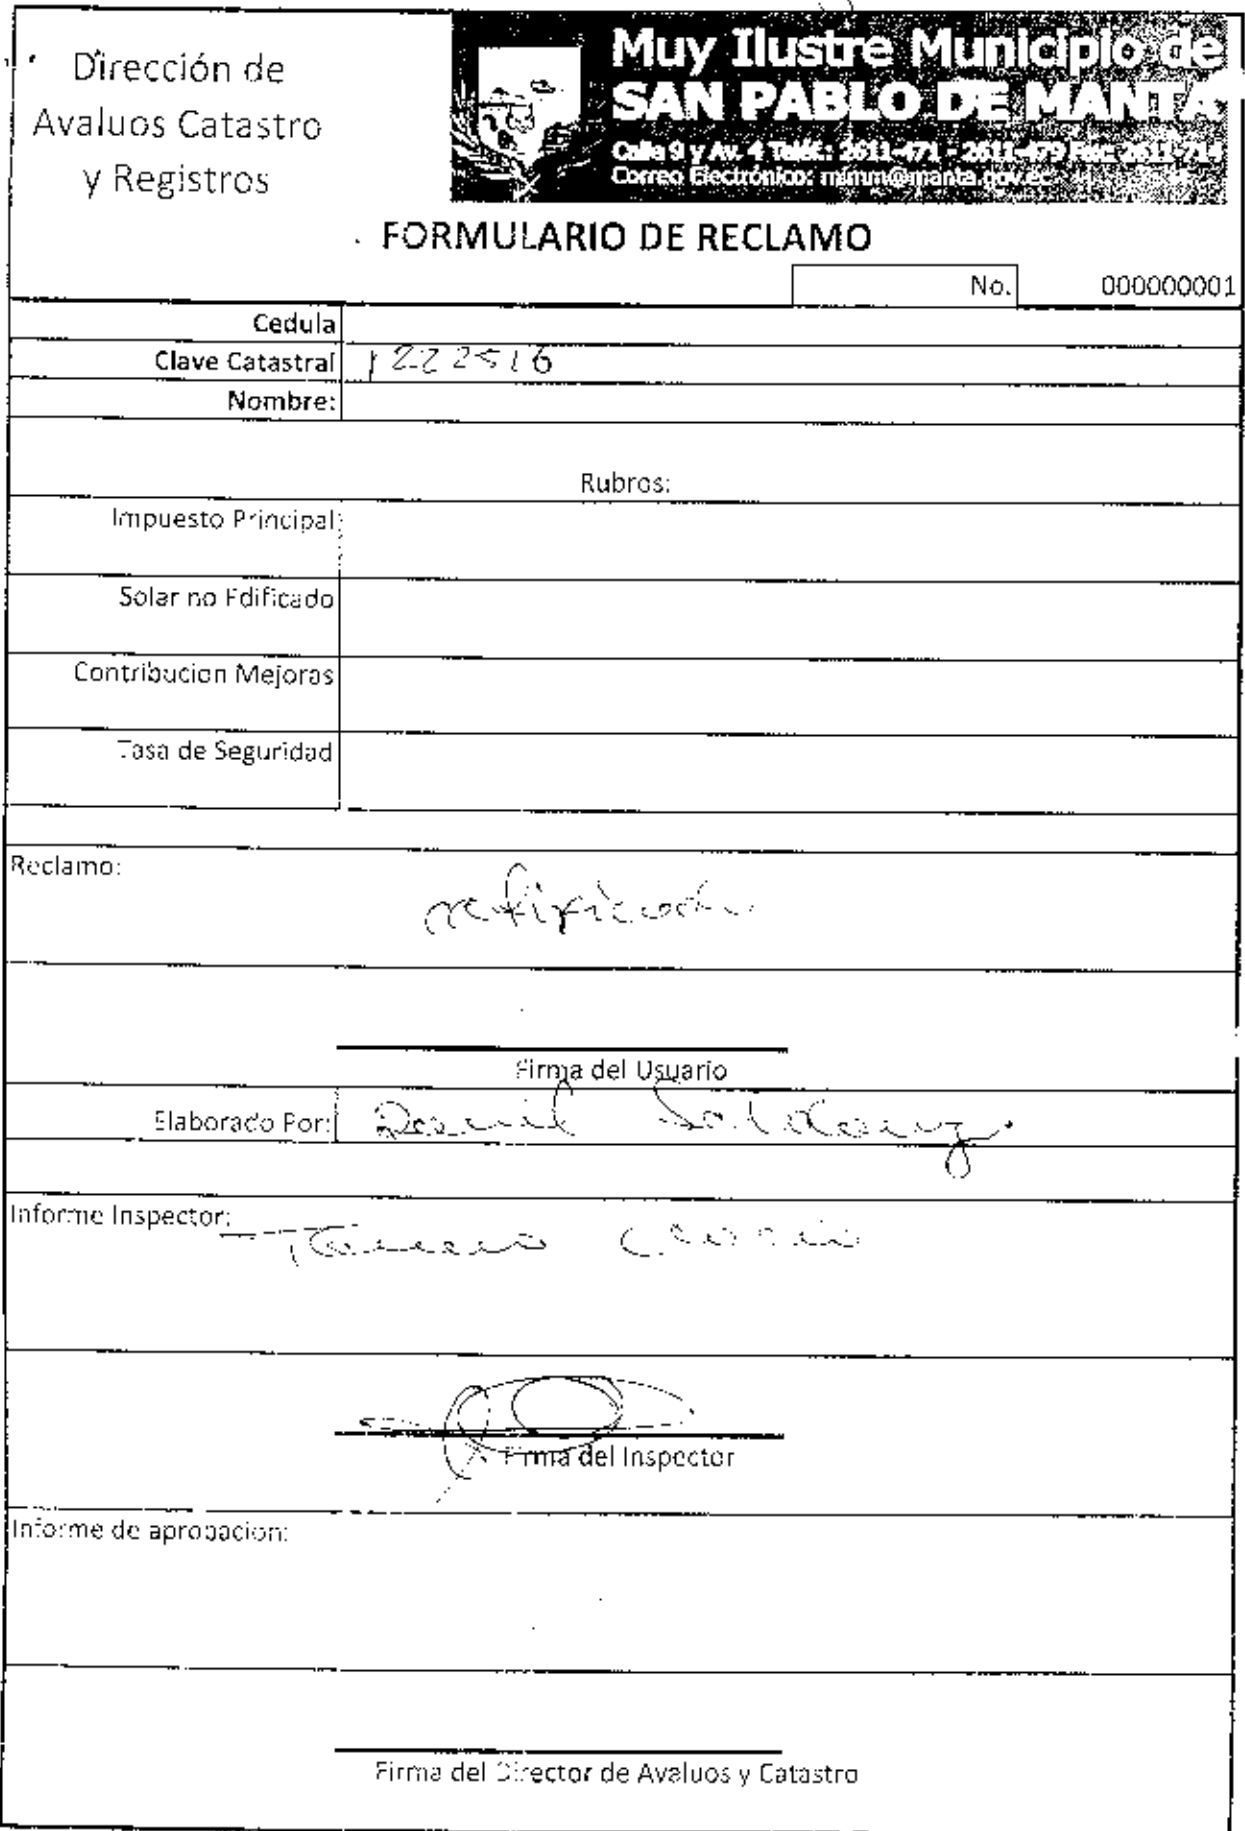 Dirección de
Avaluos Catastro
y Registros
Muy Ilustre Municipio de
SAN PABLO DE MANTA
Calle 9 y Av. 4 Telfs.: 2611-471 - 2611-479 Fax: 2611-714
Correo Electrónico: mimm@manta.gov.ec
FORMULARIO DE RECLAMO
No. 000000001
Cedula
Clave Catastral 1222516
Nombre:
Rubros:
Impuesto Principal:
Solar no Edificado
Contribucion Mejoras
Tasa de Seguridad
Reclamo:
Firma del Usuario
Elaborado Por:
Informe Inspector:
Firma del Inspector
Informe de aprobacion:
Firma del Director de Avaluos y Catastro